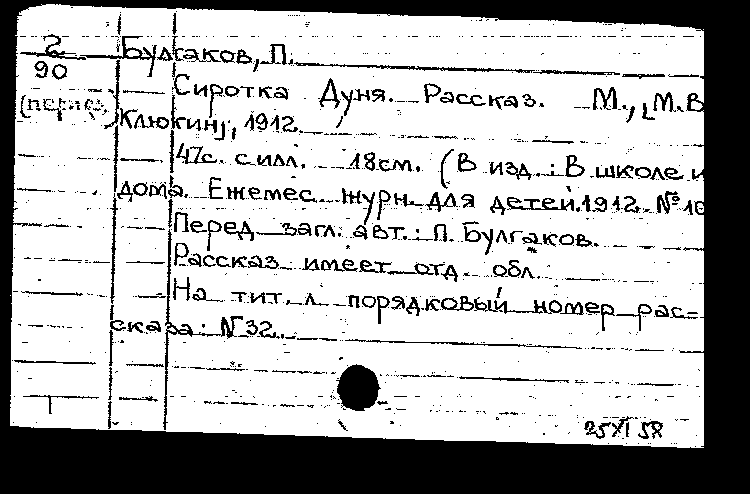 2
90
Булгаков, П.
Сиротка Дуня. Рассказ. М., [М.В
Клюкин], 1912.
47с. с илл. 18см. (В изд.: В школе и
дома. Ежемес. журн. для детей. 1912. № 10
Перед загл. авт.: П. Булгаков.
Рассказ имеет отд. обл.
На тит. л порядковый номер рас-
сказа: №32.
25/XI 58